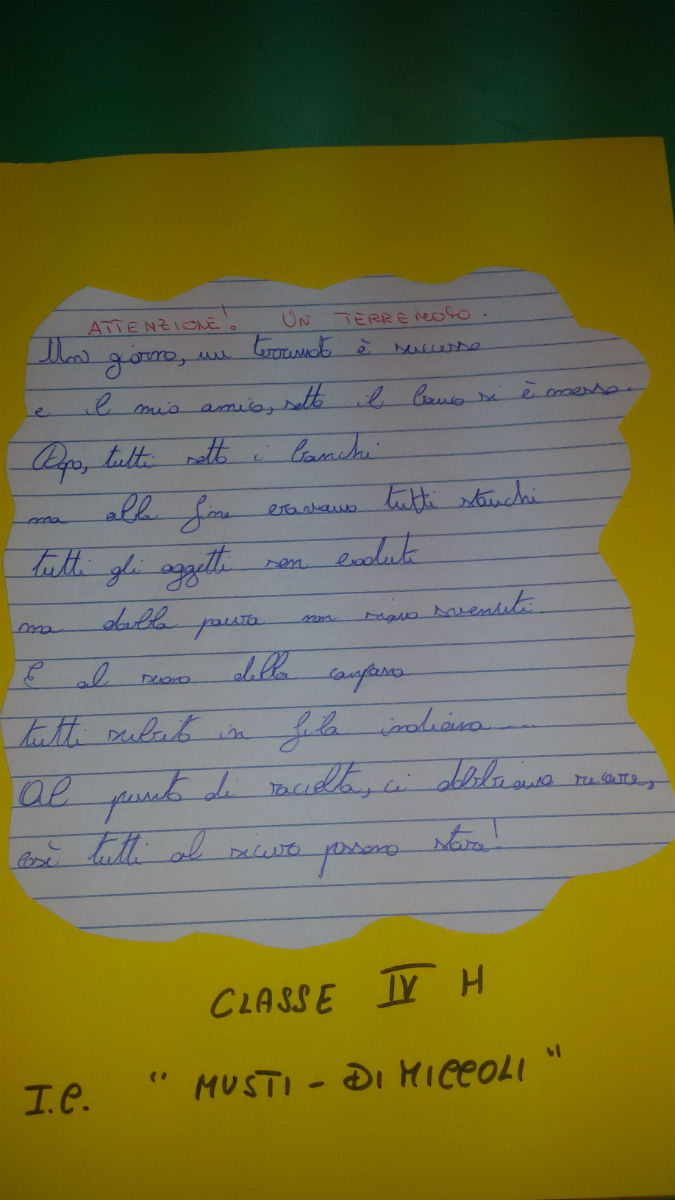 ATTENZIONE! UN TERREMOTO.
Un giorno, un terremoto è successo
e il mio amico, sotto il banco si è messo.
Dopo, tutti sotto i banchi
ma alla fine eravamo tutti stanchi
tutti gli oggetti son caduti
ma dalla paura non siamo svenuti.
E al suono della campana
tutti subito in fila indiana...
Al punto di raccolta, ci dobbiamo recare,
così tutti al sicuro possono stare!
CLASSE IV H
I.C. "MUSTI - DIMICCOLI"